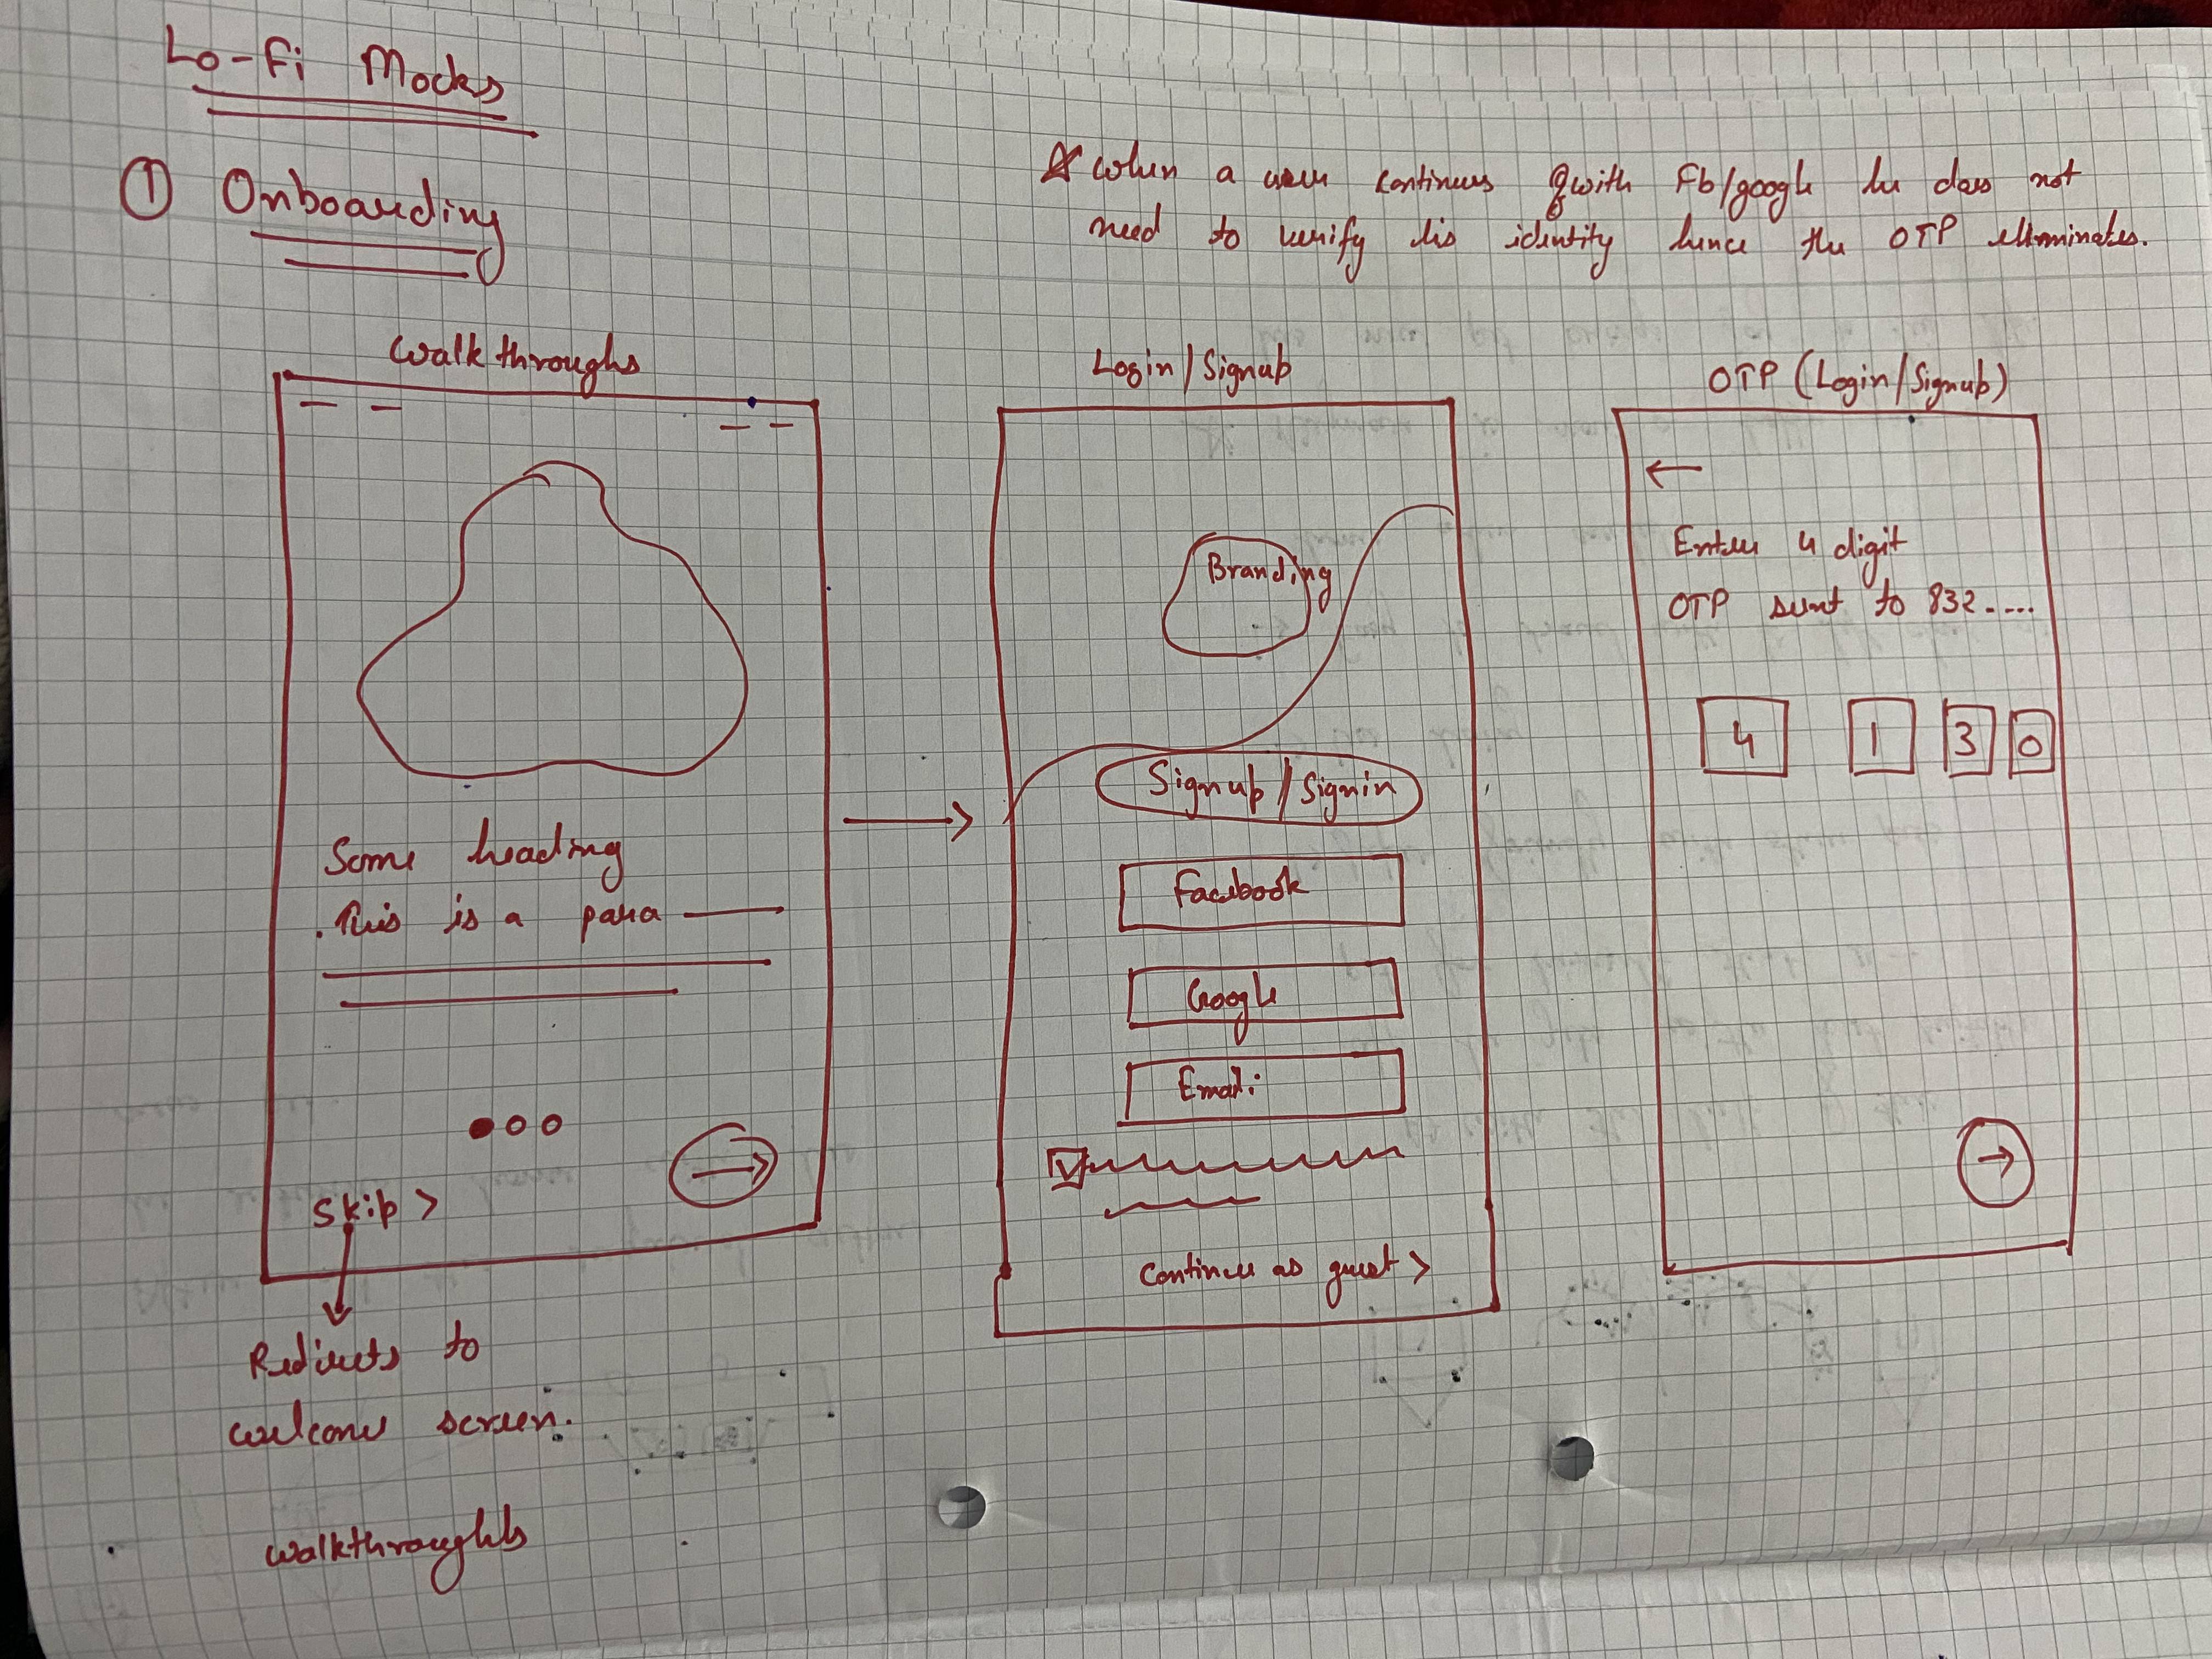 Lo-Fi Mocks
① Onboarding
☆ when a user continues with Fb/google he does not
need to verify his identity hence the OTP elluminates.
Walkthroughs
Some heading
. This is a para
Skip >
Redirects to
welcome screen.
walkthroughts
Login/Signup
Branding
Signup/Signin
Facebook
Google
Email:
Continue as guest >
OTP (Login/Signup)
←
Enter 4 digit
OTP sent to 832-...
4 1 3 0
→